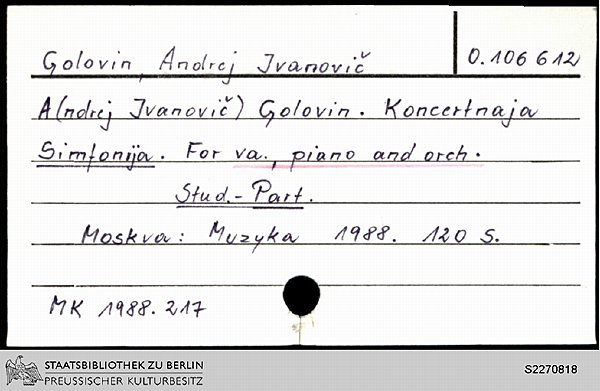 Golovin, Andrej Ivanovič
O. 106 612
A(ndrej Ivanovič) Golovin. Koncertnaja
Simfonija. For va., piano and orch.
Stud.-Part.
Moskva: Muzyka 1988. 120 S.
MK 1988.217
STAATSBIBLIOTHEK ZU BERLIN
PREUSSISCHER KULTURBESITZ
S2270818